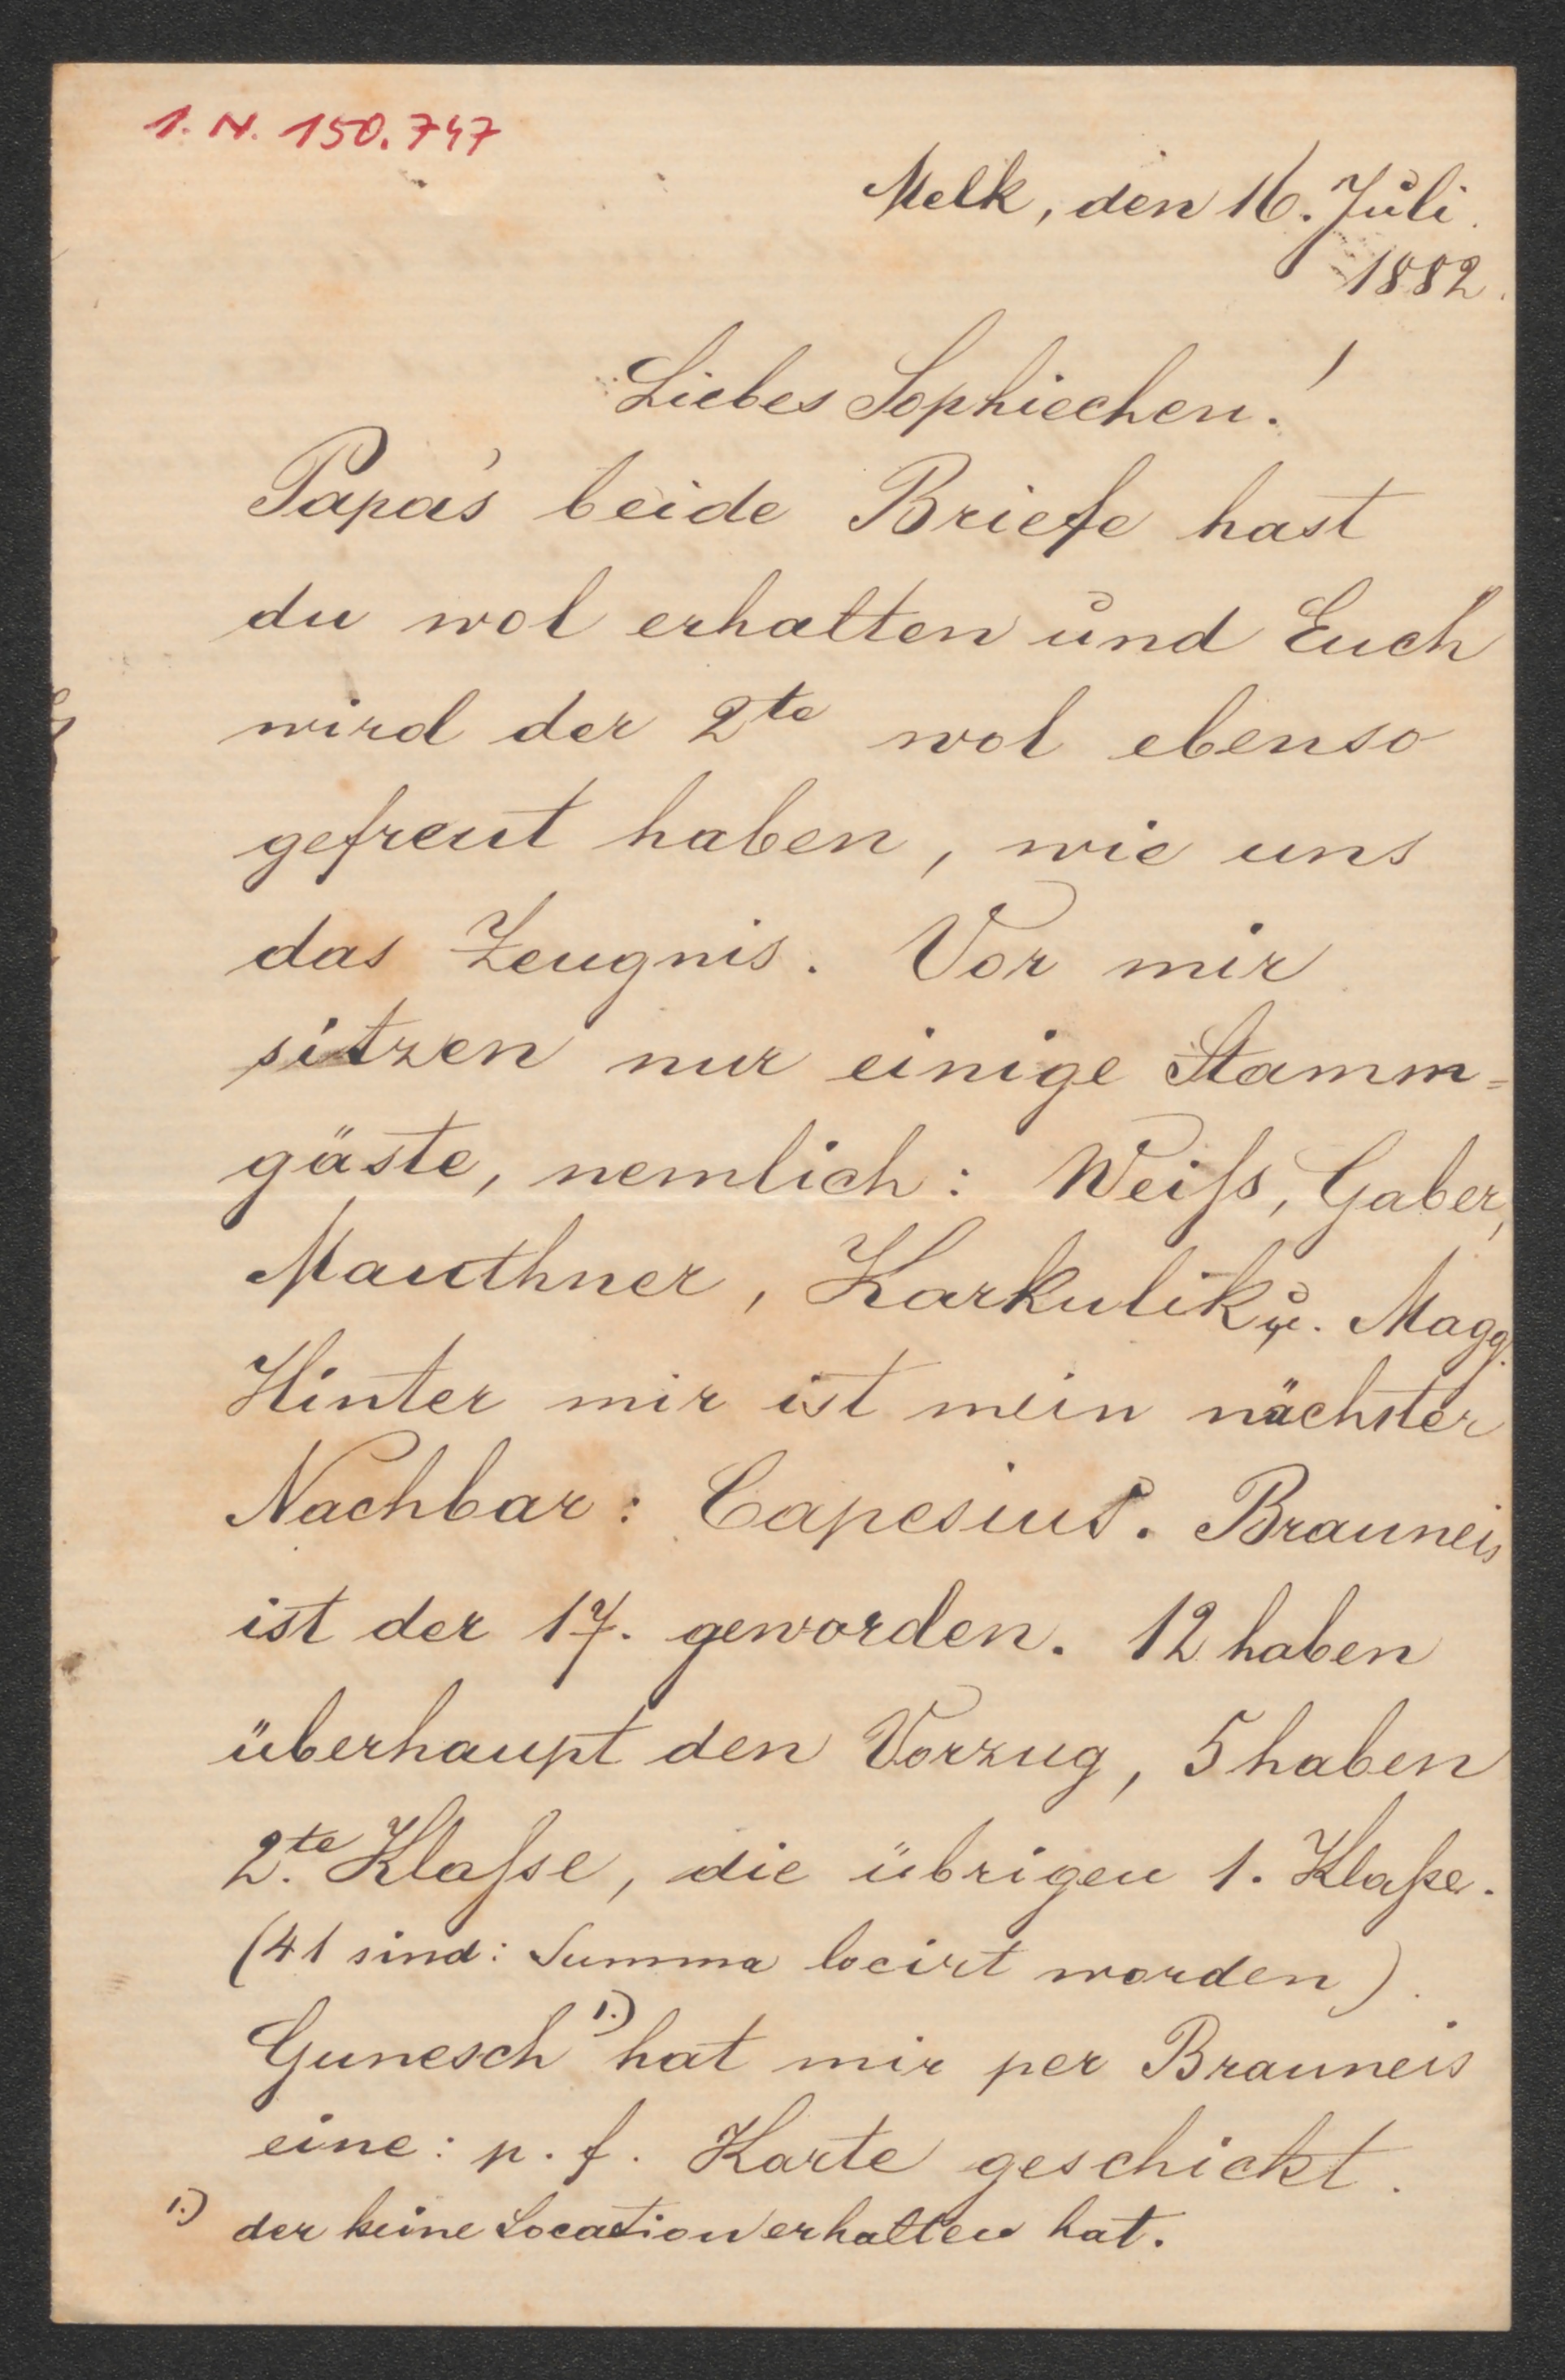 I. N. 150.747
Melk, den 16. Juli
1882.
Liebes Sophiechen!
Papa's beide Briefe hast
du wol erhalten und Euch
wird der 2te wol ebenso
gefreut haben, wie uns
das Zeugnis. Vor mir
sitzen nur einige Stamm=
gäste, nemlich: Weiſs, Gaber,
Mauthner, Karkulik u. Magg.
Hinter mir ist mein nächster
Nachbar: Capesius. Brauneis
ist der 17. geworden. 12 haben
überhaupt den Vorzug, 5 haben
2.te Klaſse, die übrigen 1. Klaße.
(41 sind: Summa locirt worden).
Gunesch 1.) hat mir per Brauneis
eine: p. f. Karte geschickt.
1.) der keine Location erhalten hat.